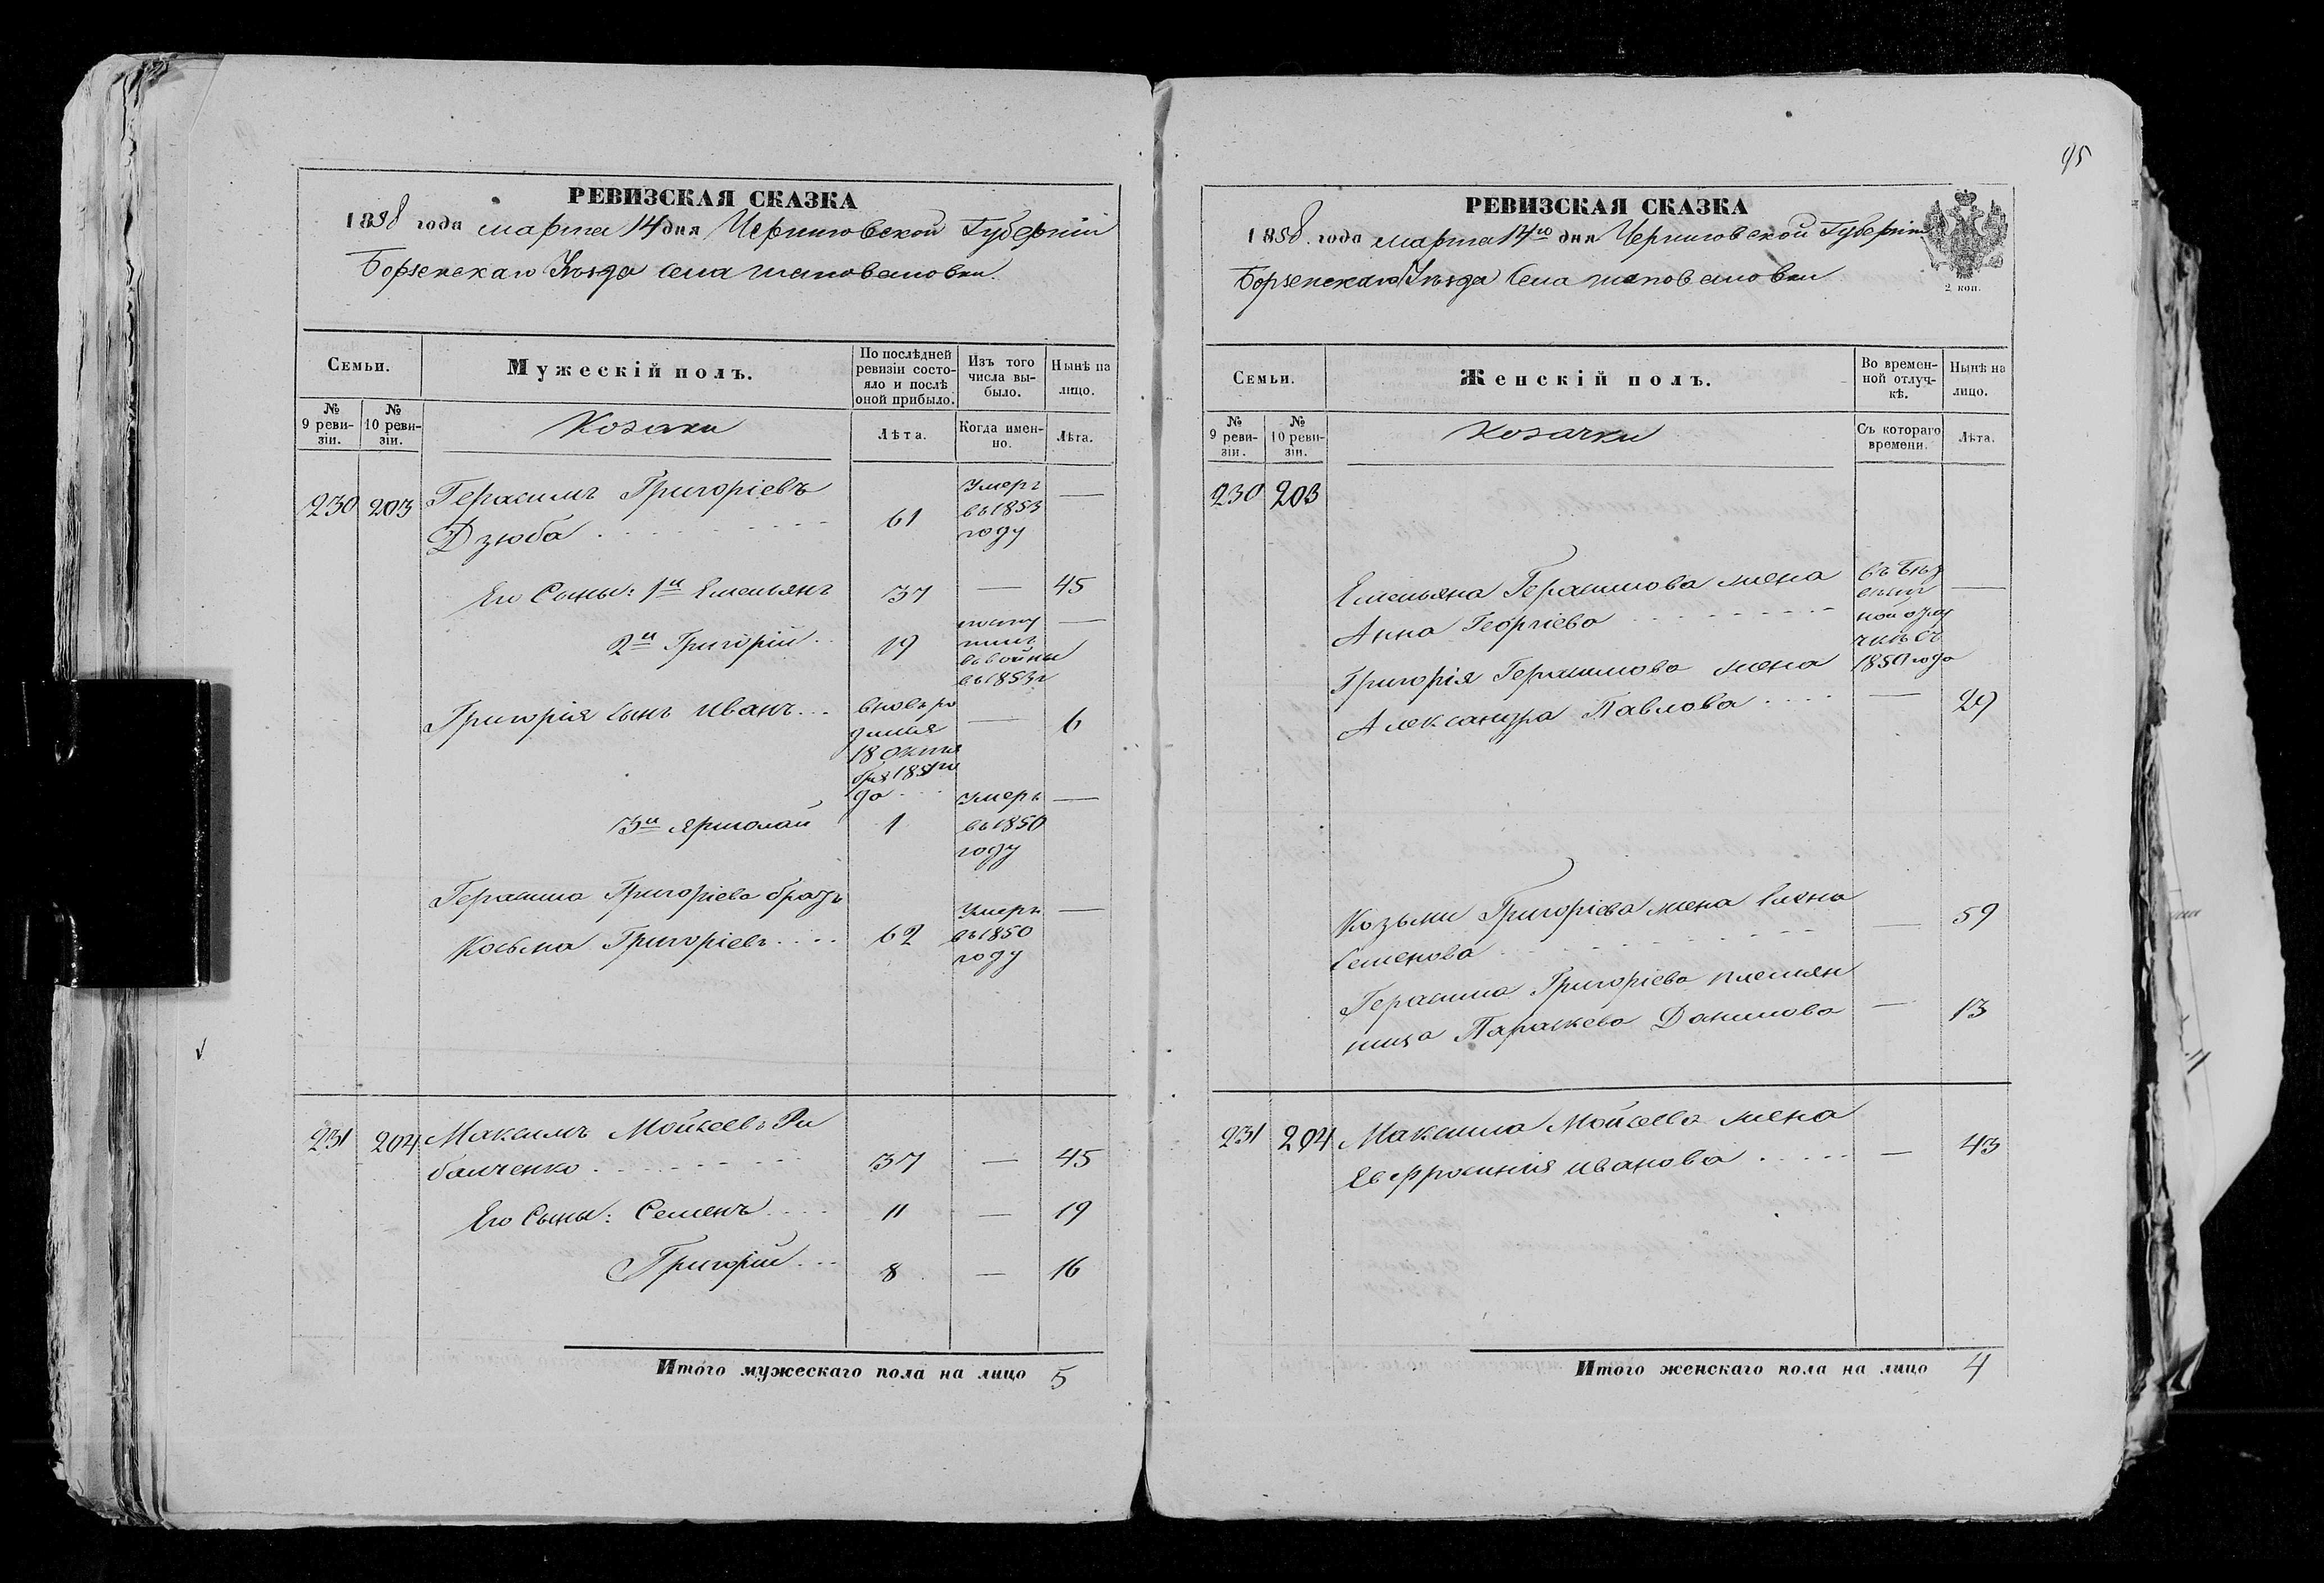 РЕВИЗСКАЯ СКАЗКА
1858 года марта 14 дня Черниговской Губерніи
Борзенскаго Уѣзда Села Шаповаловки.
Семьи.
Мужескій полъ.
По послѣдней ревизіи состояло и послѣ оной прибыло.
Изъ того числа выбыло.
Нынѣ на лицо.
№ 9 ревизіи.
№ 10 ревизіи.
Козаки
Лѣта.
Когда именно.
Лѣта.
230 203 Герасимъ Григоріевъ
Дзюба 61 Умеръ въ 1853 году —
Его Сыны: 1й Емельянъ 37 — 45
2й Григорій 19 въ 1853 —
Григорія Сынъ Иванъ вновь родился 18 Октября 1851 года — 6
3й Ярмолай 1 Умеръ въ 1850 году —
Герасима Григоріева братъ
Косьма Григоріевъ 62 Умеръ въ 1850 году —
231 204 Максимъ Мойсеевъ Ри
балченко 37 — 45
Его Сыны: Семенъ 11 — 19
Григорій 8 — 16
Итого мужескаго пола на лицо 5
95
РЕВИЗСКАЯ СКАЗКА
1858 года марта 14го дня Черниговской Губерніи
Борзенскаго Уѣзда Села Шаповаловки
2 коп.
Семьи.
Женскій полъ.
Во временной отлучкѣ.
Нынѣ на лицо.
№ 9 ревизіи.
№ 10 ревизіи.
Козачки
Съ котораго времени.
Лѣта.
230 203
Емельяна Герасимова жена
Анна Георгіева въ отлучкѣ съ 1850 года —
Григорія Герасимова жена
Александра Павлова — 29
Козьми Григоріева жена Елена
Семенова — 59
Герасима Григоріева племян
ница Параскева Данилова — 13
231 204 Максима Мойсеева жена
Евфросинія Иванова — 43
Итого женскаго пола на лицо 4